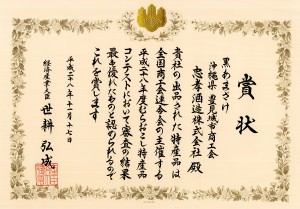 賞状
黒あまざけ
沖縄県 豊見城市商工会
忠孝酒造株式会社 殿
貴社の出品された特産品は
全国商工会連合会の主催する
平成二十八年度むらおこし特産品
コンテストにおいて審査の結果
最も優れたものと認められるので
これを賞します
平成二十八年十一月十七日
経済産業大臣 世耕 弘成